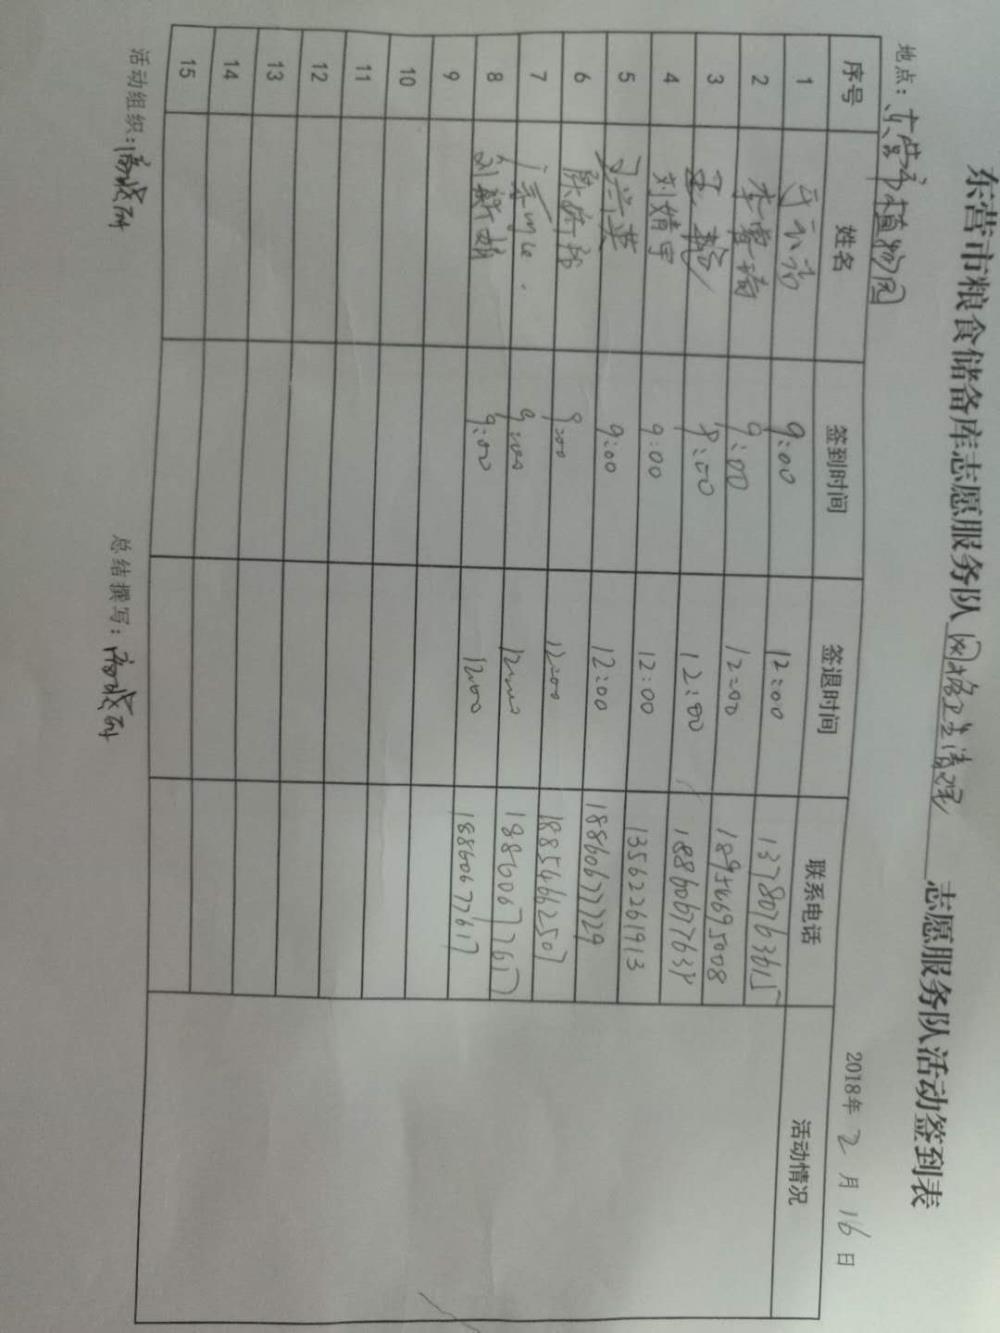 东营市粮食储备库志愿服务队网格卫生清理志愿服务队活动签到表
地点：东营市植物园 2018年2月16日
序号 姓名 签到时间 签退时间 联系电话 活动情况
1 9:00 12:00
2 李雪瑞 9:00 12:00 18954695008
3 9:00 12:00 18860677638
4 刘婧宇 9:00 12:00 13562261913
5 9:00 12:00 18860677729
6 9:00 12:00 18854662507
7 9:00 12:00 18860677617
8 9:00 12:00 18860677617
9
10
11
12
13
14
15
活动组织： 总结撰写：